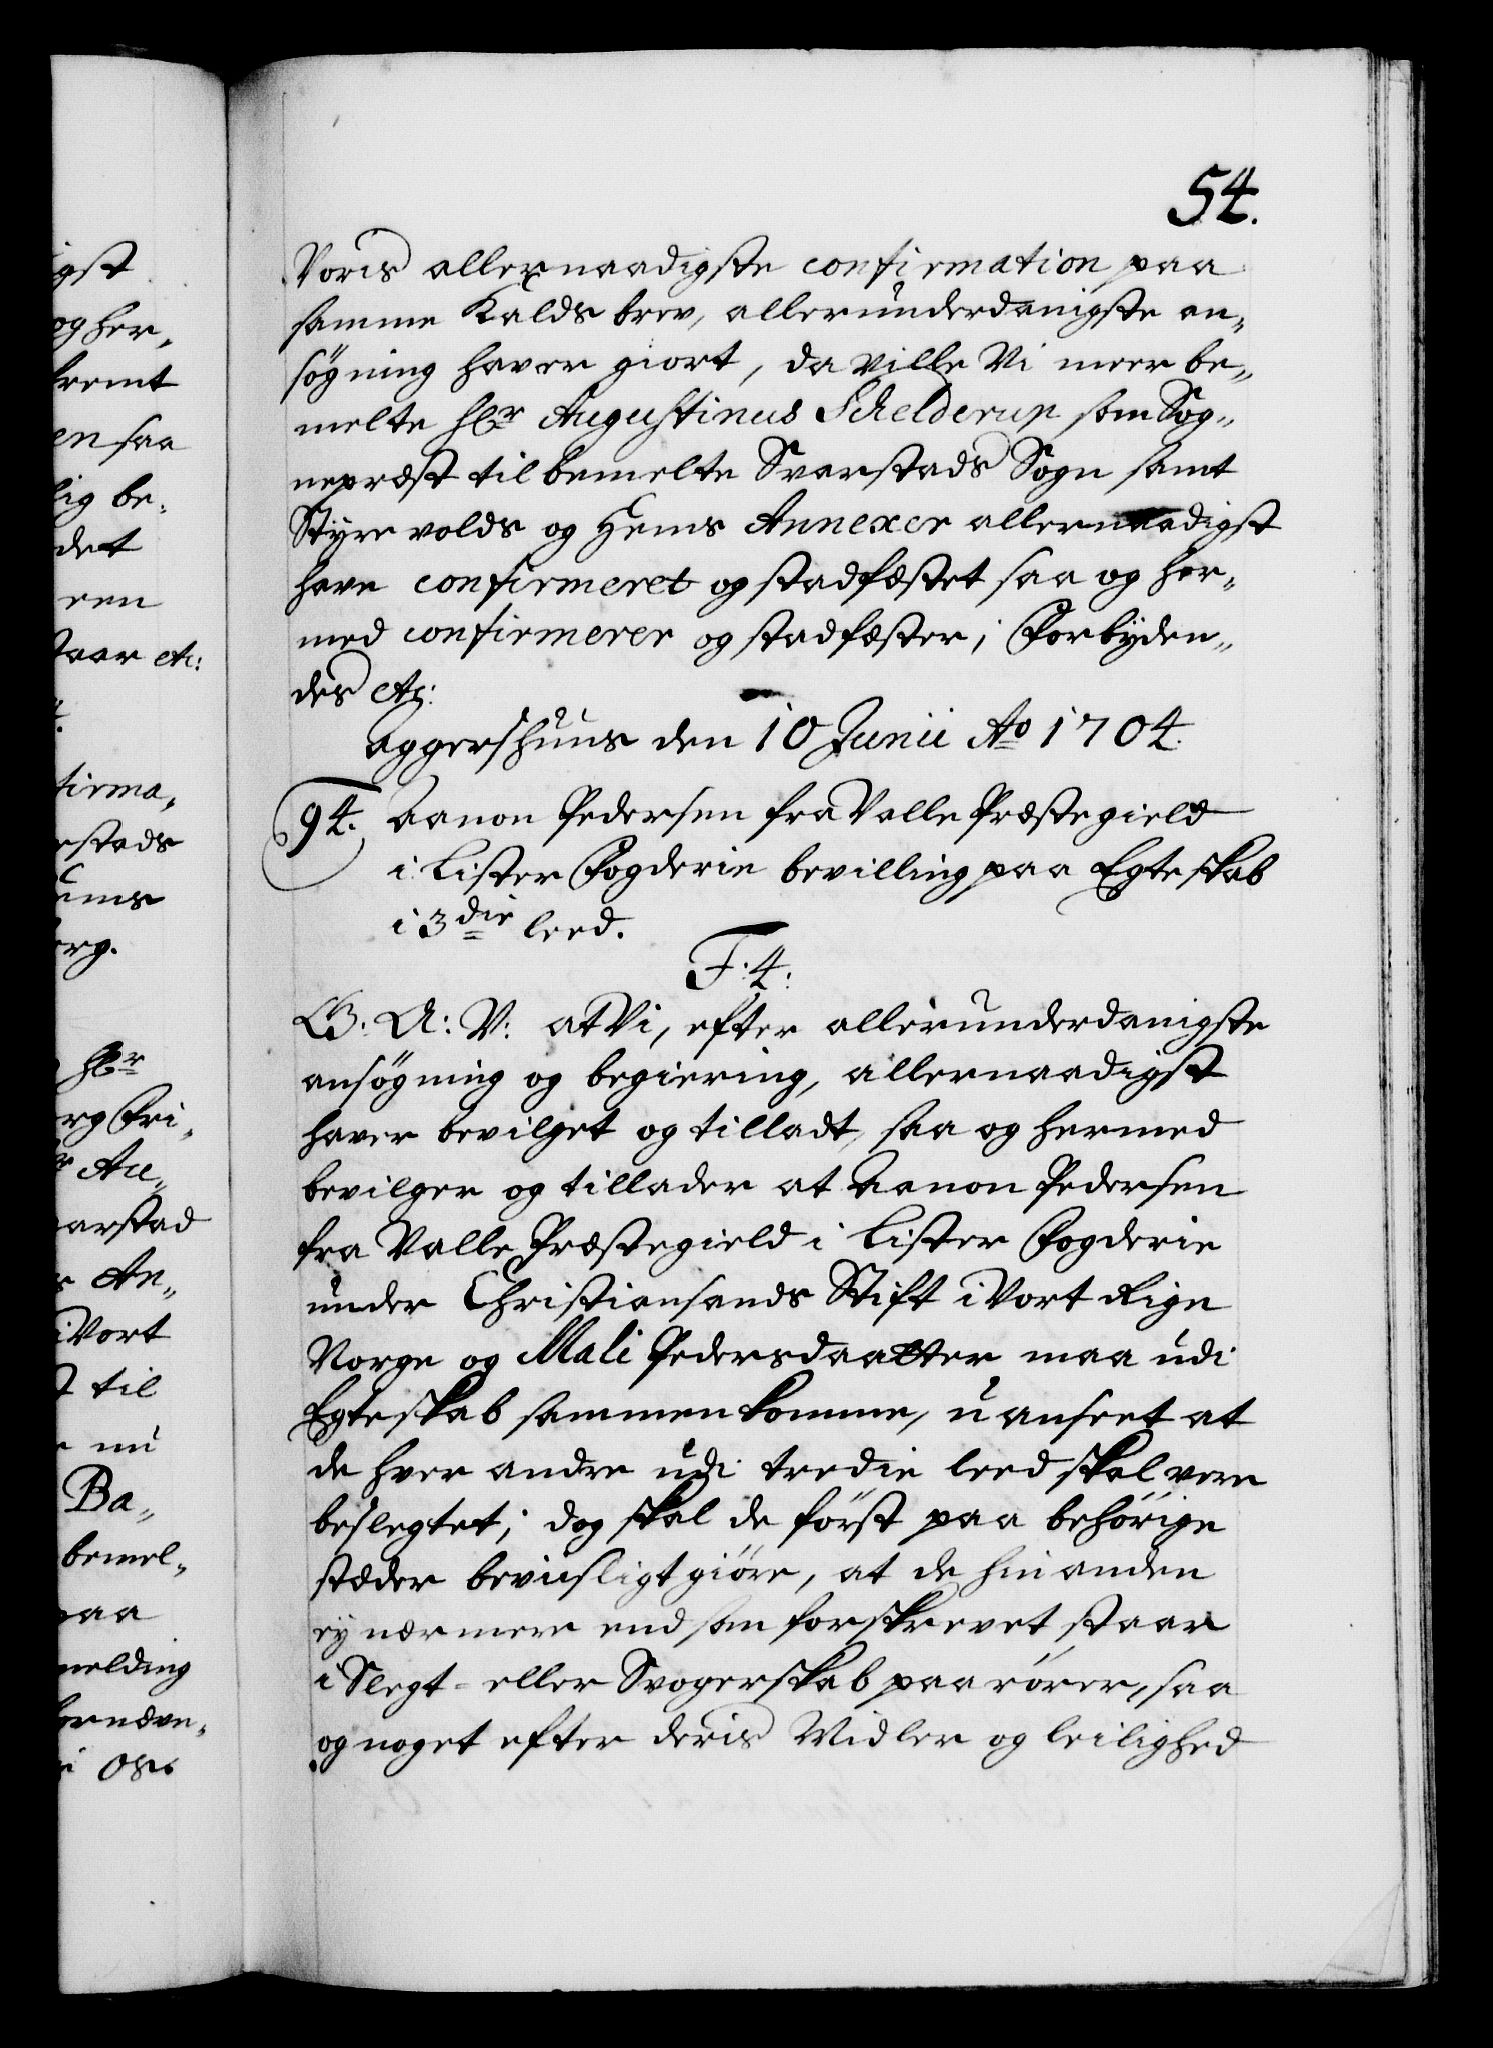 54.
Voris allernaadigste confirmation paa
samme Kalds brev, allerunderdanigste an„
søgning haver giort, da ville Vi meer be„
melte hr Augustinus Schelderup som Sog„
nepræst til bemelte Svarstads Sogn samt
Styrevolds og Hems Annexer allernaadigst
have confirmeret og stadfæstet saa og her„
med confirmerer og stadfæster; Forbyden„
des etc:
Aggershuus den 10 Junii Ao 1704.
94. Aanon Pedersen fra Valle Præstegield
i Lister Fogderie bevilling paa Egteskab
i 3die leed.
F: 4:
G. A: V: at Vi, efter allerunderdanigste
ansøgning og begiering, allernaadigst
haver bevilget og tilladt, saa og hermed
bevilger og tillader at Aanon Pedersen
fra Valle Præstegield i Lister Fogderie
under Christiansands Stift i Vort Rige
Norge og Mali Pedersdaatter maa udi
Egteskab sammenkomme, uanseet at
de hver andre udi tredie leed skal vere
beslegtet; dog skal de først paa behørige
stæder beviisligt giøre, at de hinanden
ey nærmere end som forskrevet staar
i Slegt- eller Svogerskab paarører, saa
og noget efter deris Midler og leilighed
gst
og her„
kremt
en saa
lig be„
det
een
staar etc:
firma„
estads
ems
erg.
hr
erg Fri„
Au„
arstad
An„
i Vort
til
nu
Ba„
bemel„
paa
melding
fornævn„
Os